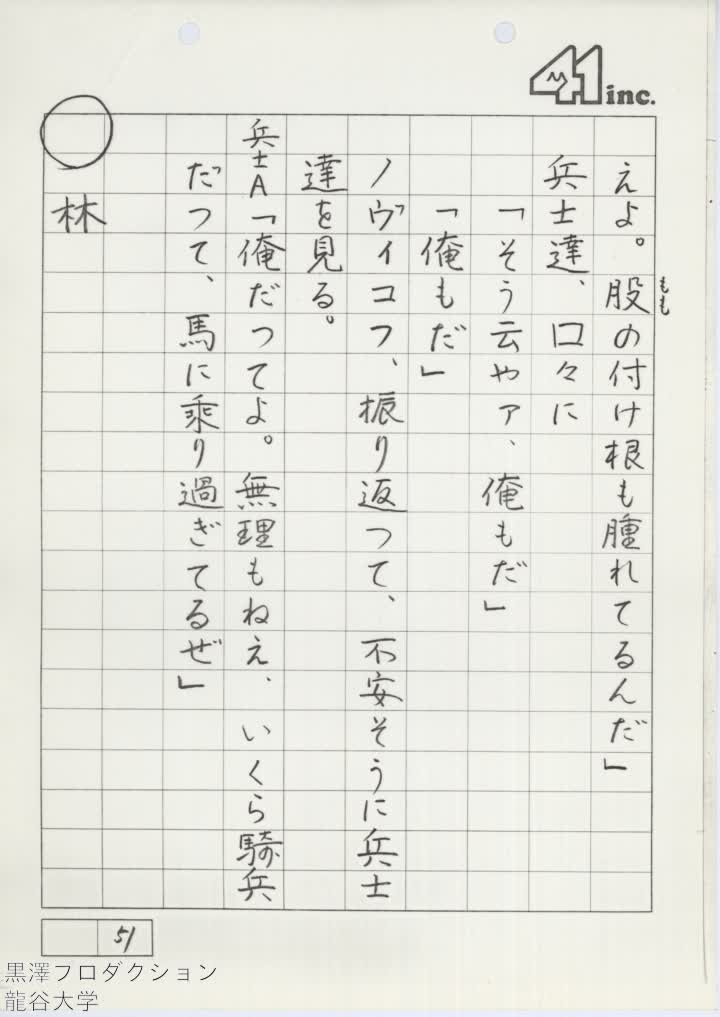 41 inc.
えよ。股の付け根も腫れてるんだ」
もも
兵士達、口々に
「そう云やァ、俺もだ」
「俺もだ」
ノヴィコフ、振り返つて、不安そうに兵士
達を見る。
兵士A「俺だつてよ。無理もねえ、いくら騎兵
だつて、馬に乗り過ぎてるぜ」
○林
51
黒澤プロダクション
龍谷大学